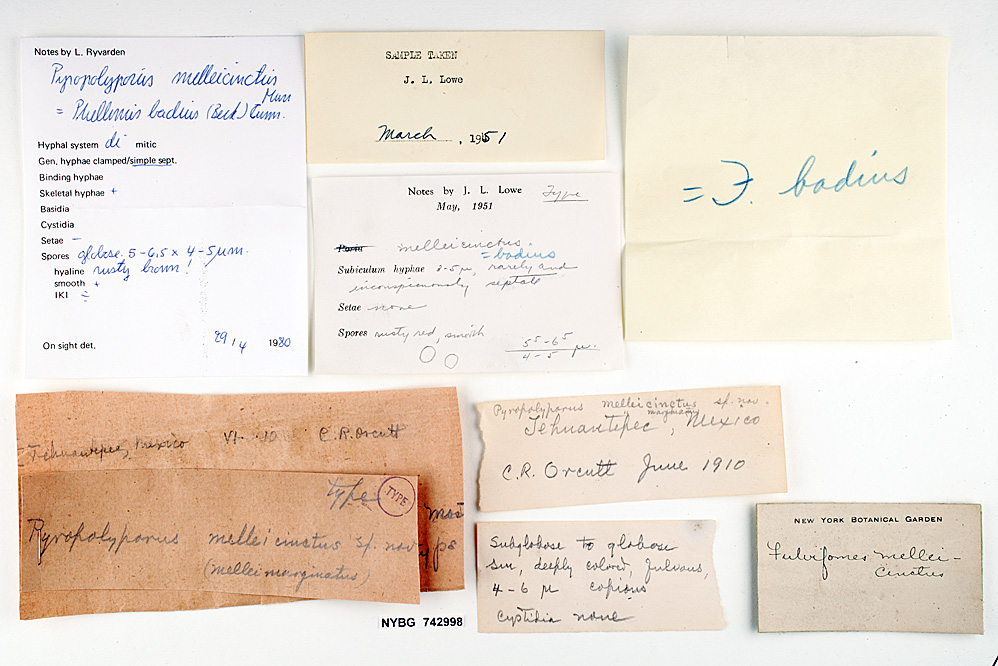 Notes by L. Ryvarden
Pyropolyporus melleicinctus
Murr
= Phellinus badius (Berk.) Cunn.
Hyphal system di mitic
Gen. hyphae clamped/simple sept.
Binding hyphae
Skeletal hyphae +
Basidia
Cystidia
Setae –
Spores globose. 5-6,5 x 4-5 µm.
hyaline rusty brown!
smooth +
IKI ÷
On sight det. 29/4 1980
SAMPLE TAKEN
J. L. Lowe
March, 1951
Notes by J. L. Lowe Type
May, 1951
Poria melleicinctus.
= badius
Subiculum hyphae 2-5 µ, rarely and
inconspicuously septate
Setae none
Spores rusty red, smooth
55-65
4-5 µ.
= F. badius
Tehuantepec, Mexico VI-10 C.R. Orcutt
type TYPE
Pyropolyporus melleicinctus sp. nov.
(melleimarginatus)
Pyropolyporus melleicinctus sp. nov.
marginatus
Tehuantepec, Mexico
C.R. Orcutt June 1910
Subglobose to globose
sm, deeply colored, fulvous,
4-6 µ copious
Cystidia none
NEW YORK BOTANICAL GARDEN
Fulvifomes mellei-
cinctus
NYBG 742998